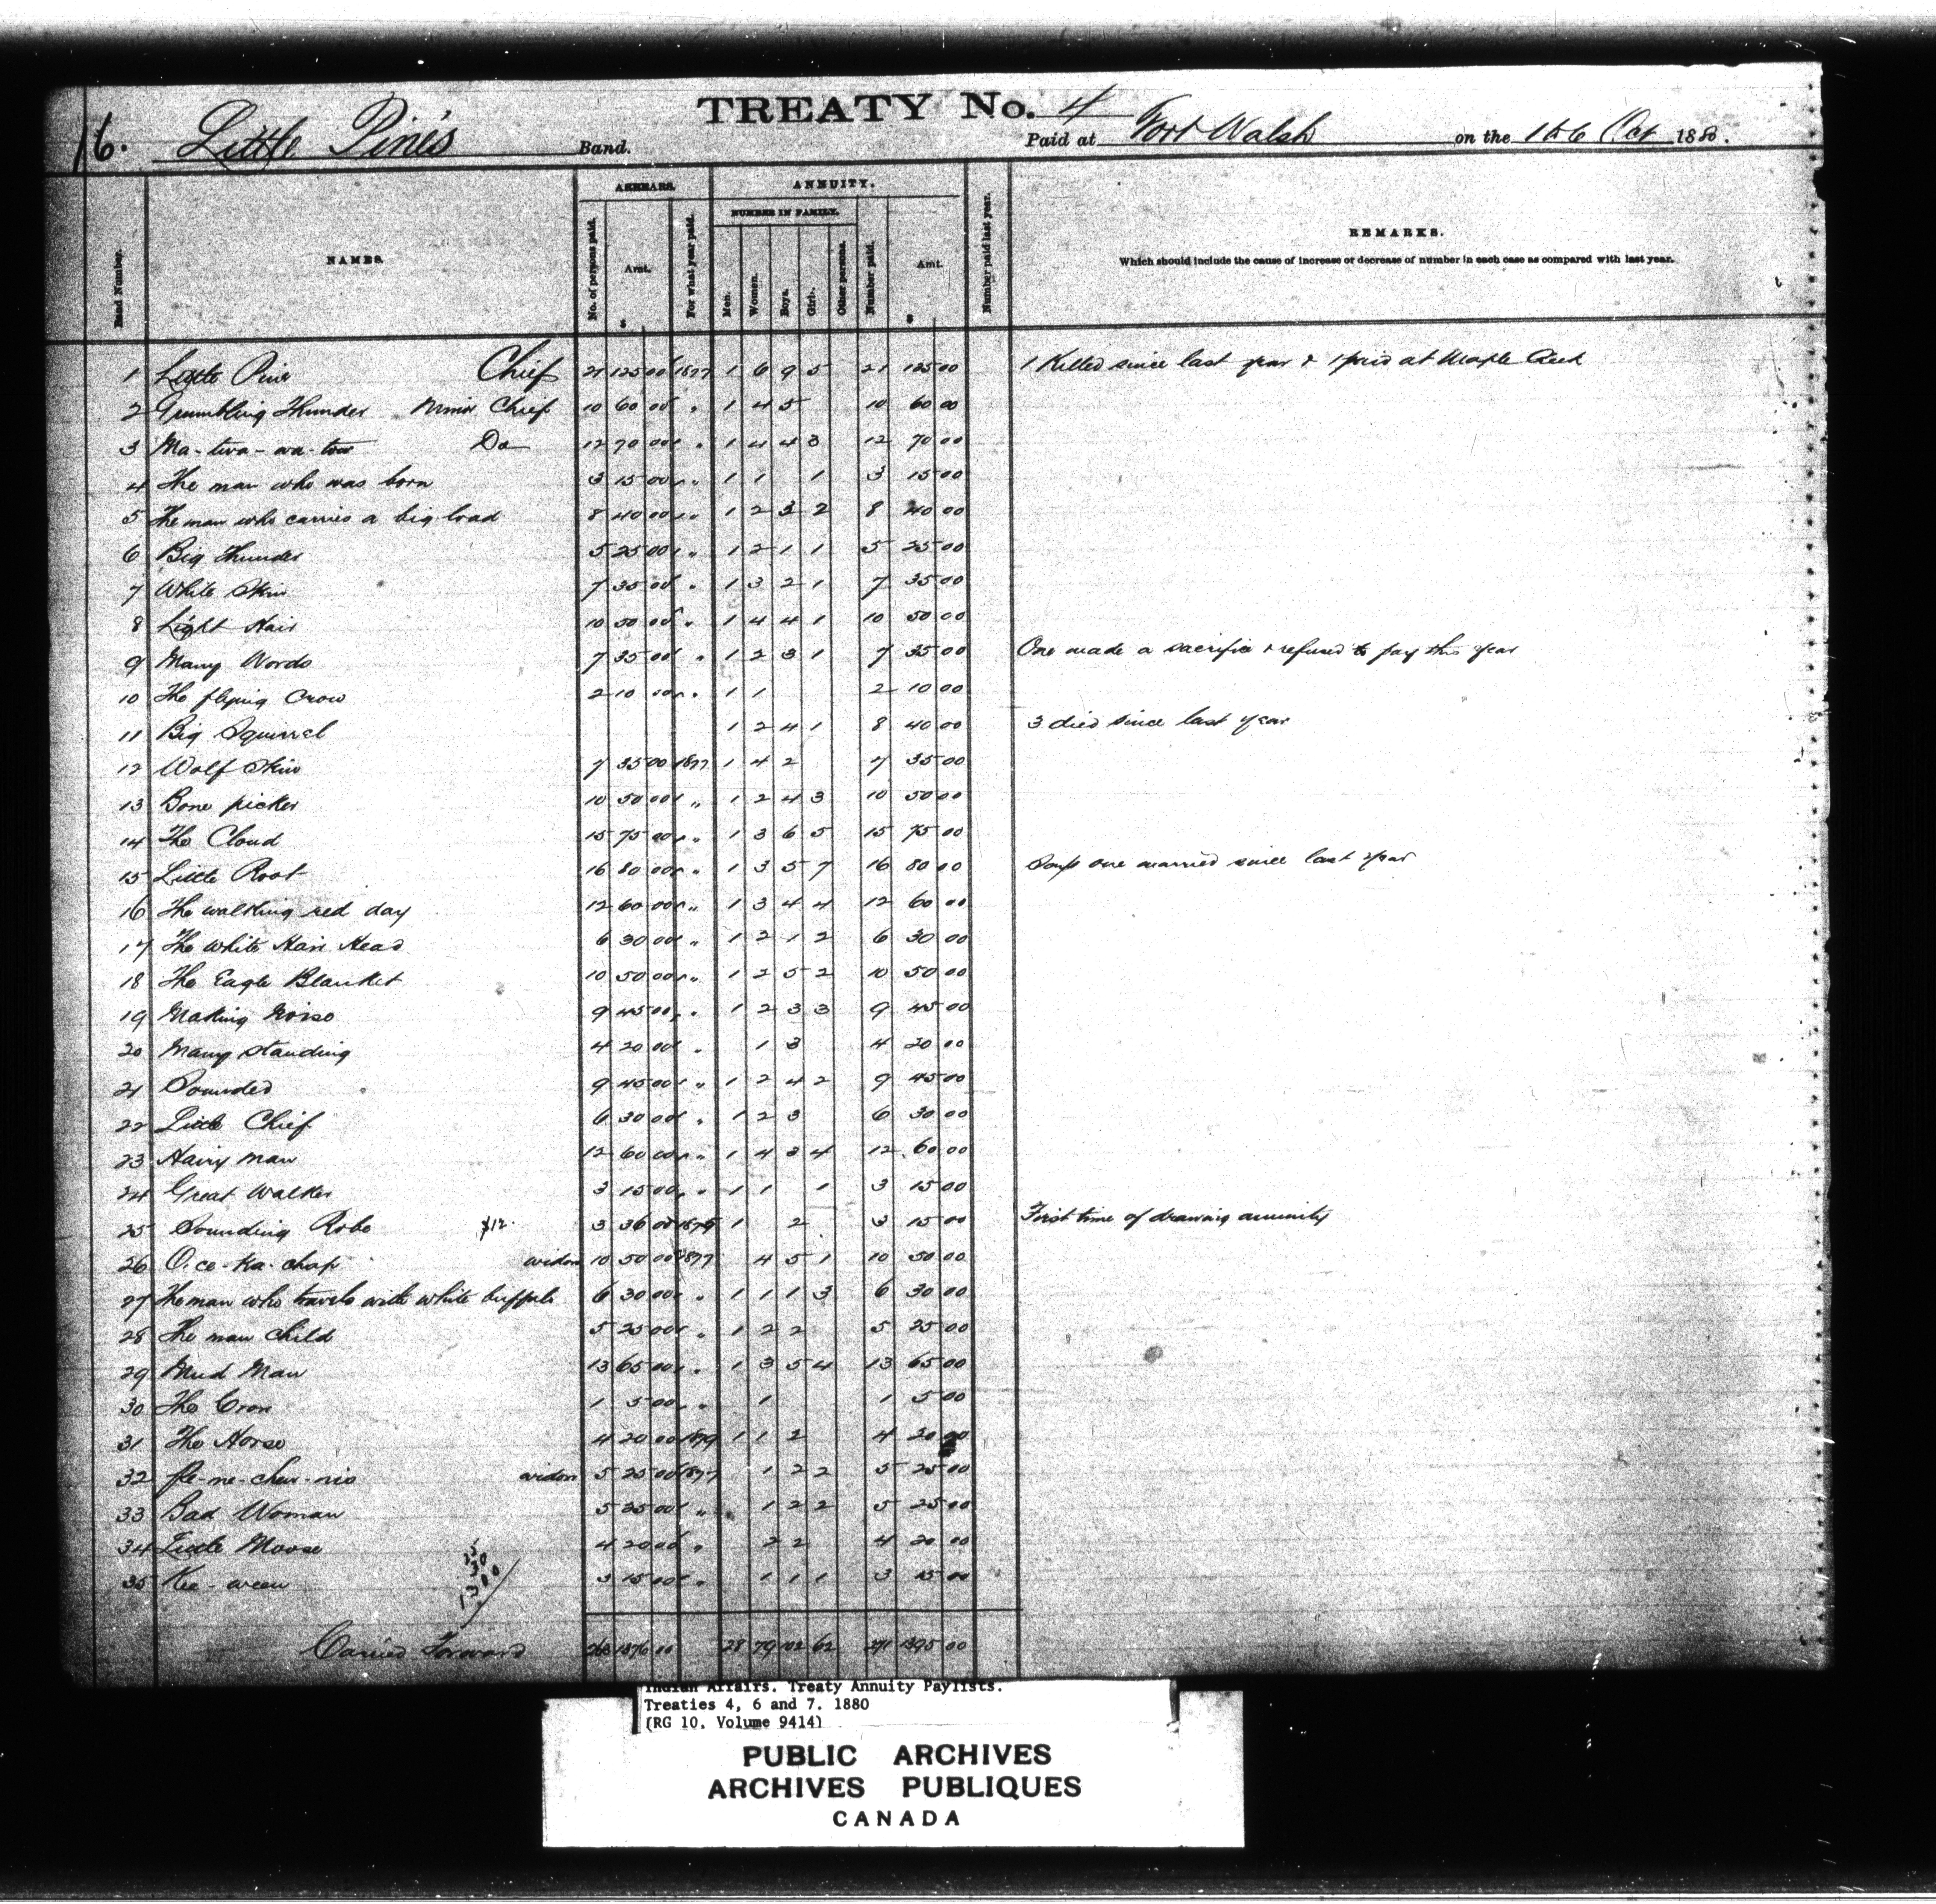 TREATY No. 4
16. Little Pine's Band. Paid at Fort Walsh on the 1 to 6 Oct 1880.
ARREARS. ANNUITY.
NUMBER IN FAMILY.
Band Number. NAMES. No. of persons paid. Amt. $ For what year paid. Men. Women. Boys. Girls. Other persons. Number paid. Amt. $ Number paid last year. REMARKS.
Which should include the cause of increase or decrease of number in each case as compared with last year.
1 Little Pine Chief 21 125 00 1877 1 6 9 5 21 125 00 1 Killed since last year & 1 paid at Maple Creek
2 Grumbling Thunder Minor Chief 10 60 00 " 1 4 5 10 60 00
3 Ma-twa-wa-tow Do 12 70 00 " 1 4 4 3 12 70 00
4 The man who was born 3 15 00 " 1 1 1 3 15 00
5 The man who carries a big load 8 40 00 " 1 2 3 2 8 40 00
6 Big Thunder 5 25 00 " 1 2 1 1 5 25 00
7 White Skin 7 35 00 " 1 3 2 1 7 35 00
8 Light Hair 10 50 00 " 1 4 4 1 10 50 00
9 Many Words 7 35 00 " 1 2 3 1 7 35 00 One made a sacrifice & refused to pay this year
10 The flying Crow 2 10 00 " 1 1 2 10 00
11 Big Squirrel 1 2 4 1 8 40 00 3 died since last year
12 Wolf Skin 7 35 00 1877 1 4 2 7 35 00
13 Bone picker 10 50 00 " 1 2 4 3 10 50 00
14 The Cloud 15 75 00 " 1 3 6 5 15 75 00
15 Little Root 16 80 00 " 1 3 5 7 16 80 00 one married since last year
16 The walking red day 12 60 00 " 1 3 4 4 12 60 00
17 The White Hair Head 6 30 00 " 1 2 1 2 6 30 00
18 The Eagle Blanket 10 50 00 " 1 2 5 2 10 50 00
19 Making Noise 9 45 00 " 1 2 3 3 9 45 00
20 Many standing 4 20 00 " 1 3 4 20 00
21 Sounded 9 45 00 " 1 2 4 2 9 45 00
22 Little Chief 6 30 00 " 1 2 3 6 30 00
23 Hairy man 12 60 00 " 1 4 3 4 12 60 00
24 Great Walker 3 15 00 " 1 1 1 3 15 00
25 Sounding Robe $12. 3 36 00 1 2 3 15 00 First time of drawing annuity
26 O-ce-ka-chap widow 10 50 00 1877 4 5 1 10 50 00
27 The man who travels with white buffalo 6 30 00 " 1 1 1 3 6 30 00
28 The man child 5 25 00 " 1 2 2 5 25 00
29 Mud Man 13 65 00 " 1 3 5 4 13 65 00
30 The Crow 1 5 00 " 1 1 5 00
31 The Horse 4 20 00 1879 1 1 2 4 20 00
32 widow 5 25 00 1877 1 2 2 5 25 00
33 Bad Woman 5 25 00 " 1 2 2 5 25 00
34 Little Moose 4 20 00 " 2 2 4 20 00
35 Kee-ween 3 15 00 " 1 1 1 3 15 00
Carried Forward 263 1376 00 28 79 102 62 271 1395 00
Indian Affairs. Treaty Annuity Paylists.
Treaties 4, 6 and 7. 1880
(RG 10, Volume 9414)
PUBLIC ARCHIVES
ARCHIVES PUBLIQUES
CANADA